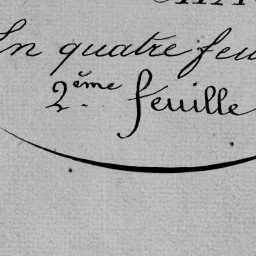 In quatre feu
2.ème feuille